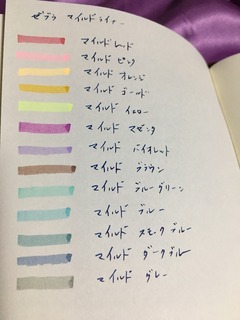 ゼブラ マイルドライナー
マイルド レッド
マイルド ピンク
マイルド オレンジ
マイルド ゴールド
マイルド イエロー
マイルド マゼンタ
マイルド バイオレット
マイルド ブラウン
マイルド ブルーグリーン
マイルド ブルー
マイルド スモークブルー
マイルド ダークブルー
マイルド グレー